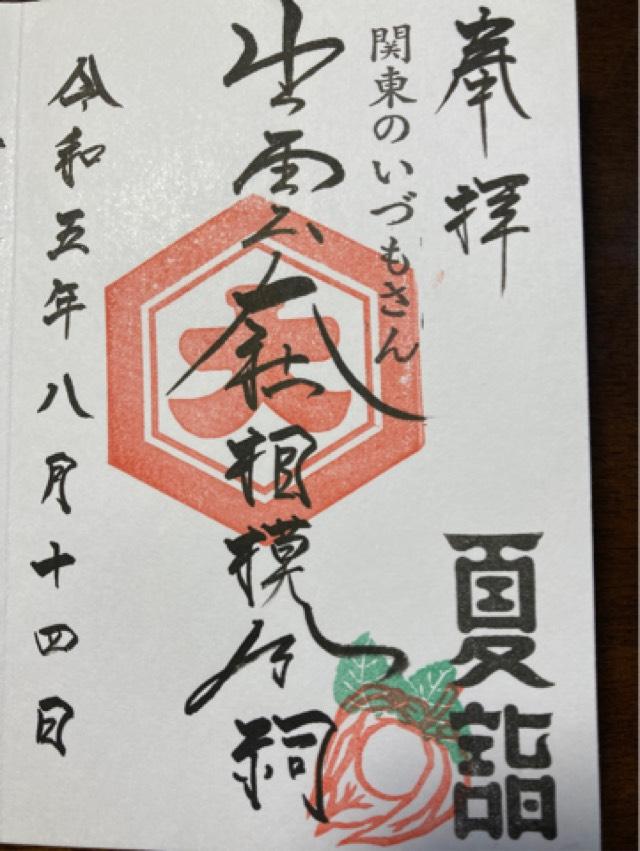 奉拝
夏詣
関東のいづもさん
出雲大社相模分祠
令和五年八月十四日
大